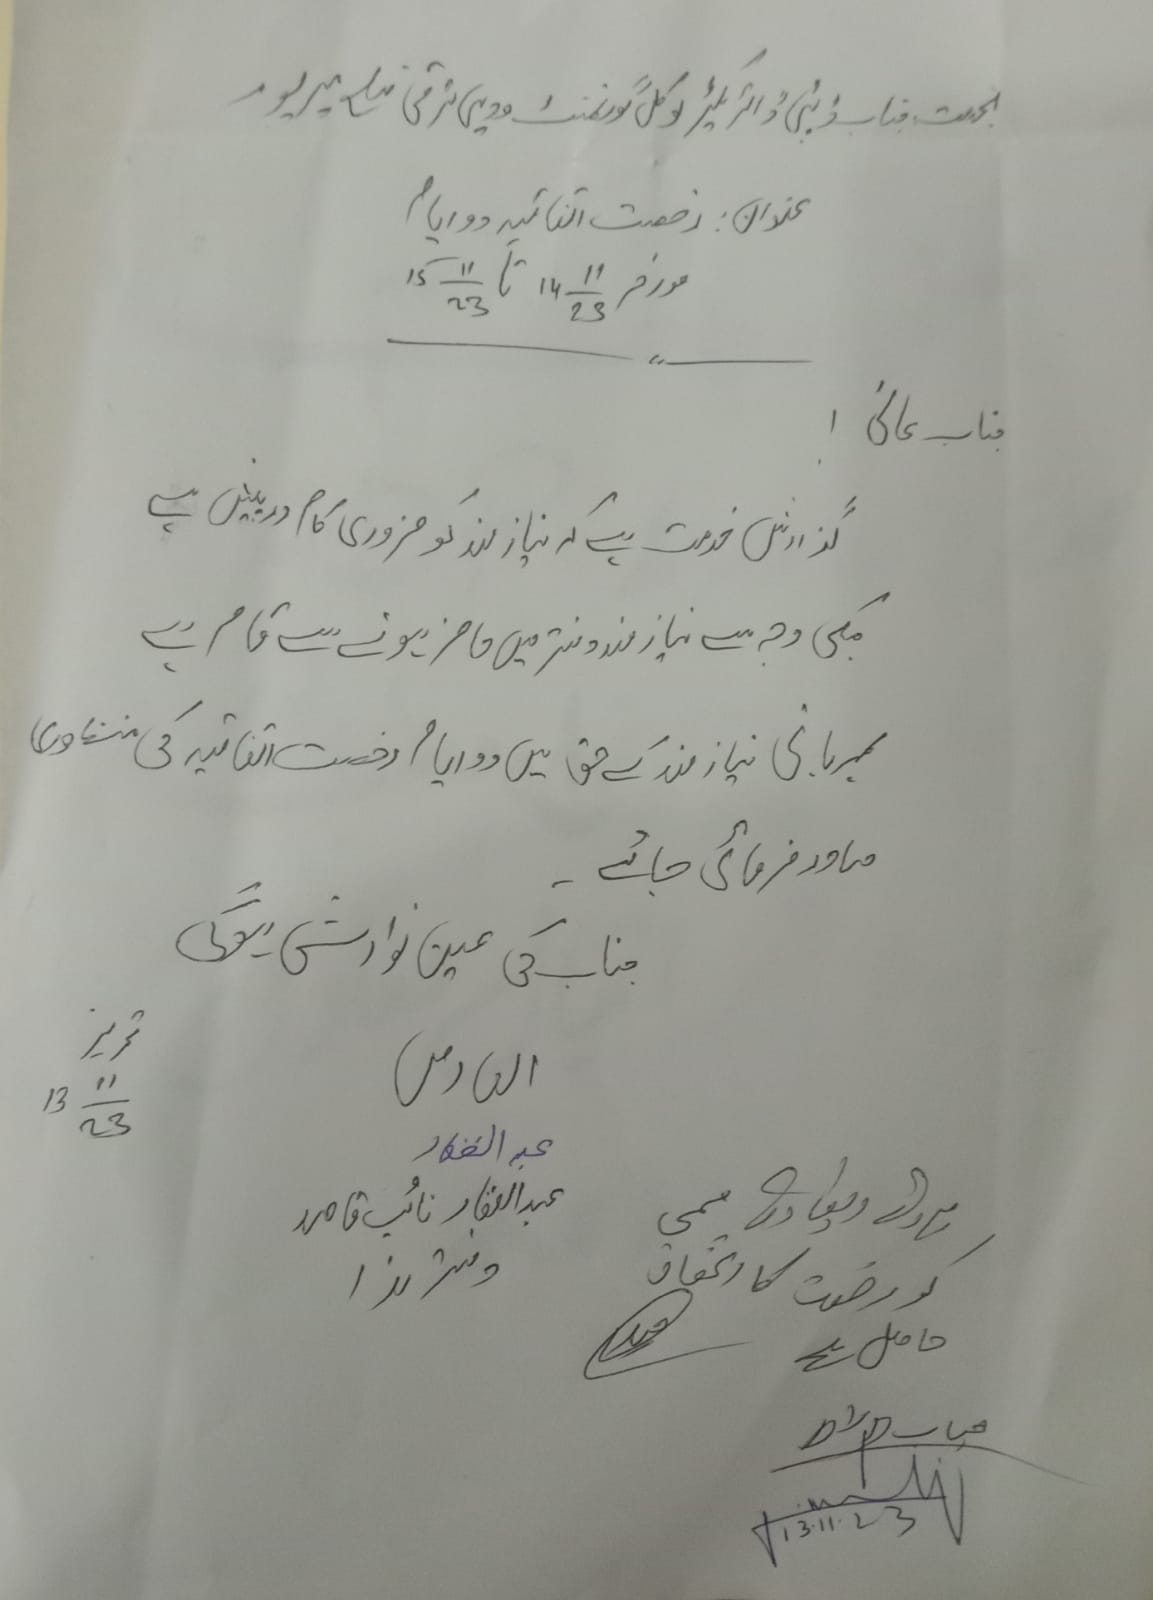 بخدمت جناب ڈپٹی ڈائریکٹر لوکل گورنمنٹ ودیہی ترقی ضلع میرپور
عنوان: رخصت اتفاقیہ دو ایام
مورخہ 14 11/23 تا 15 11/23
جناب عالی !
گذارش خدمت ہے کہ نیازمند کو ضروری کام درپیش ہے
جسکی وجہ سے نیازمند دفتر میں حاضر ہونے سے قاصر ہے
بمہربانی نیازمند کے حق میں دو ایام رخصت اتفاقیہ کی منظوری
صادر فرمائی جائے ۔
جناب کی عین نوازش ہوگی
تحریر
13 11/23
العارض
عبدالغفار
عبدالغفار نائب قاصد
دفتر ہذا
مسمی
کو رخصت کا استحقاق
حاصل ہے
جناب
13.11.23